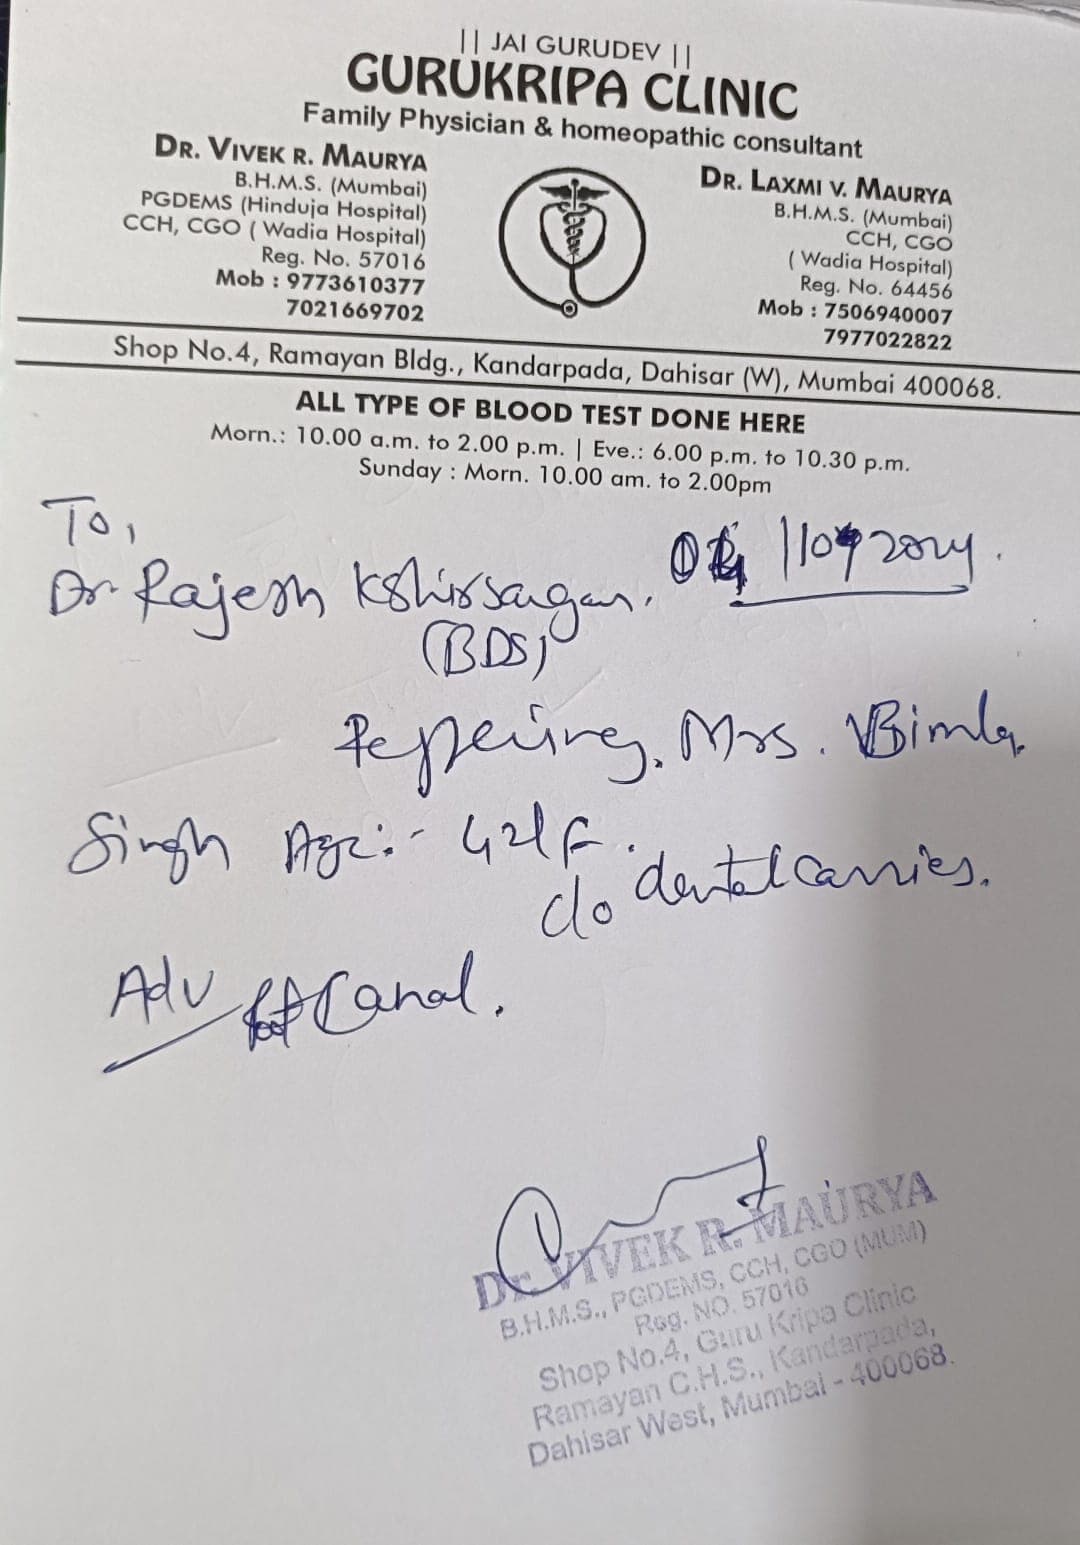 || JAI GURUDEV ||
GURUKRIPA CLINIC
Family Physician & homeopathic consultant
DR. VIVEK R. MAURYA
B.H.M.S. (Mumbai)
PGDEMS (Hinduja Hospital)
CCH, CGO ( Wadia Hospital)
Reg. No. 57016
Mob : 9773610377
7021669702
DR. LAXMI V. MAURYA
B.H.M.S. (Mumbai)
CCH, CGO
( Wadia Hospital)
Reg. No. 64456
Mob : 7506940007
7977022822
Shop No.4, Ramayan Bldg., Kandarpada, Dahisar (W), Mumbai 400068.
ALL TYPE OF BLOOD TEST DONE HERE
Morn.: 10.00 a.m. to 2.00 p.m. | Eve.: 6.00 p.m. to 10.30 p.m.
Sunday : Morn. 10.00 am. to 2.00pm
To,
2024.
Dr Rajesh Kshirsagar.
(BDS)
Mrs. Bimla
Singh Age:- 42/F.
c/o dental carries.
Adv Canal.
Dr. VIVEK R. MAURYA
B.H.M.S., PGDEMS, CCH, CGO (MUM)
Reg. NO. 57016
Shop No.4, Guru Kripa Clinic
Ramayan C.H.S., Kandarpada,
Dahisar West, Mumbai - 400068.